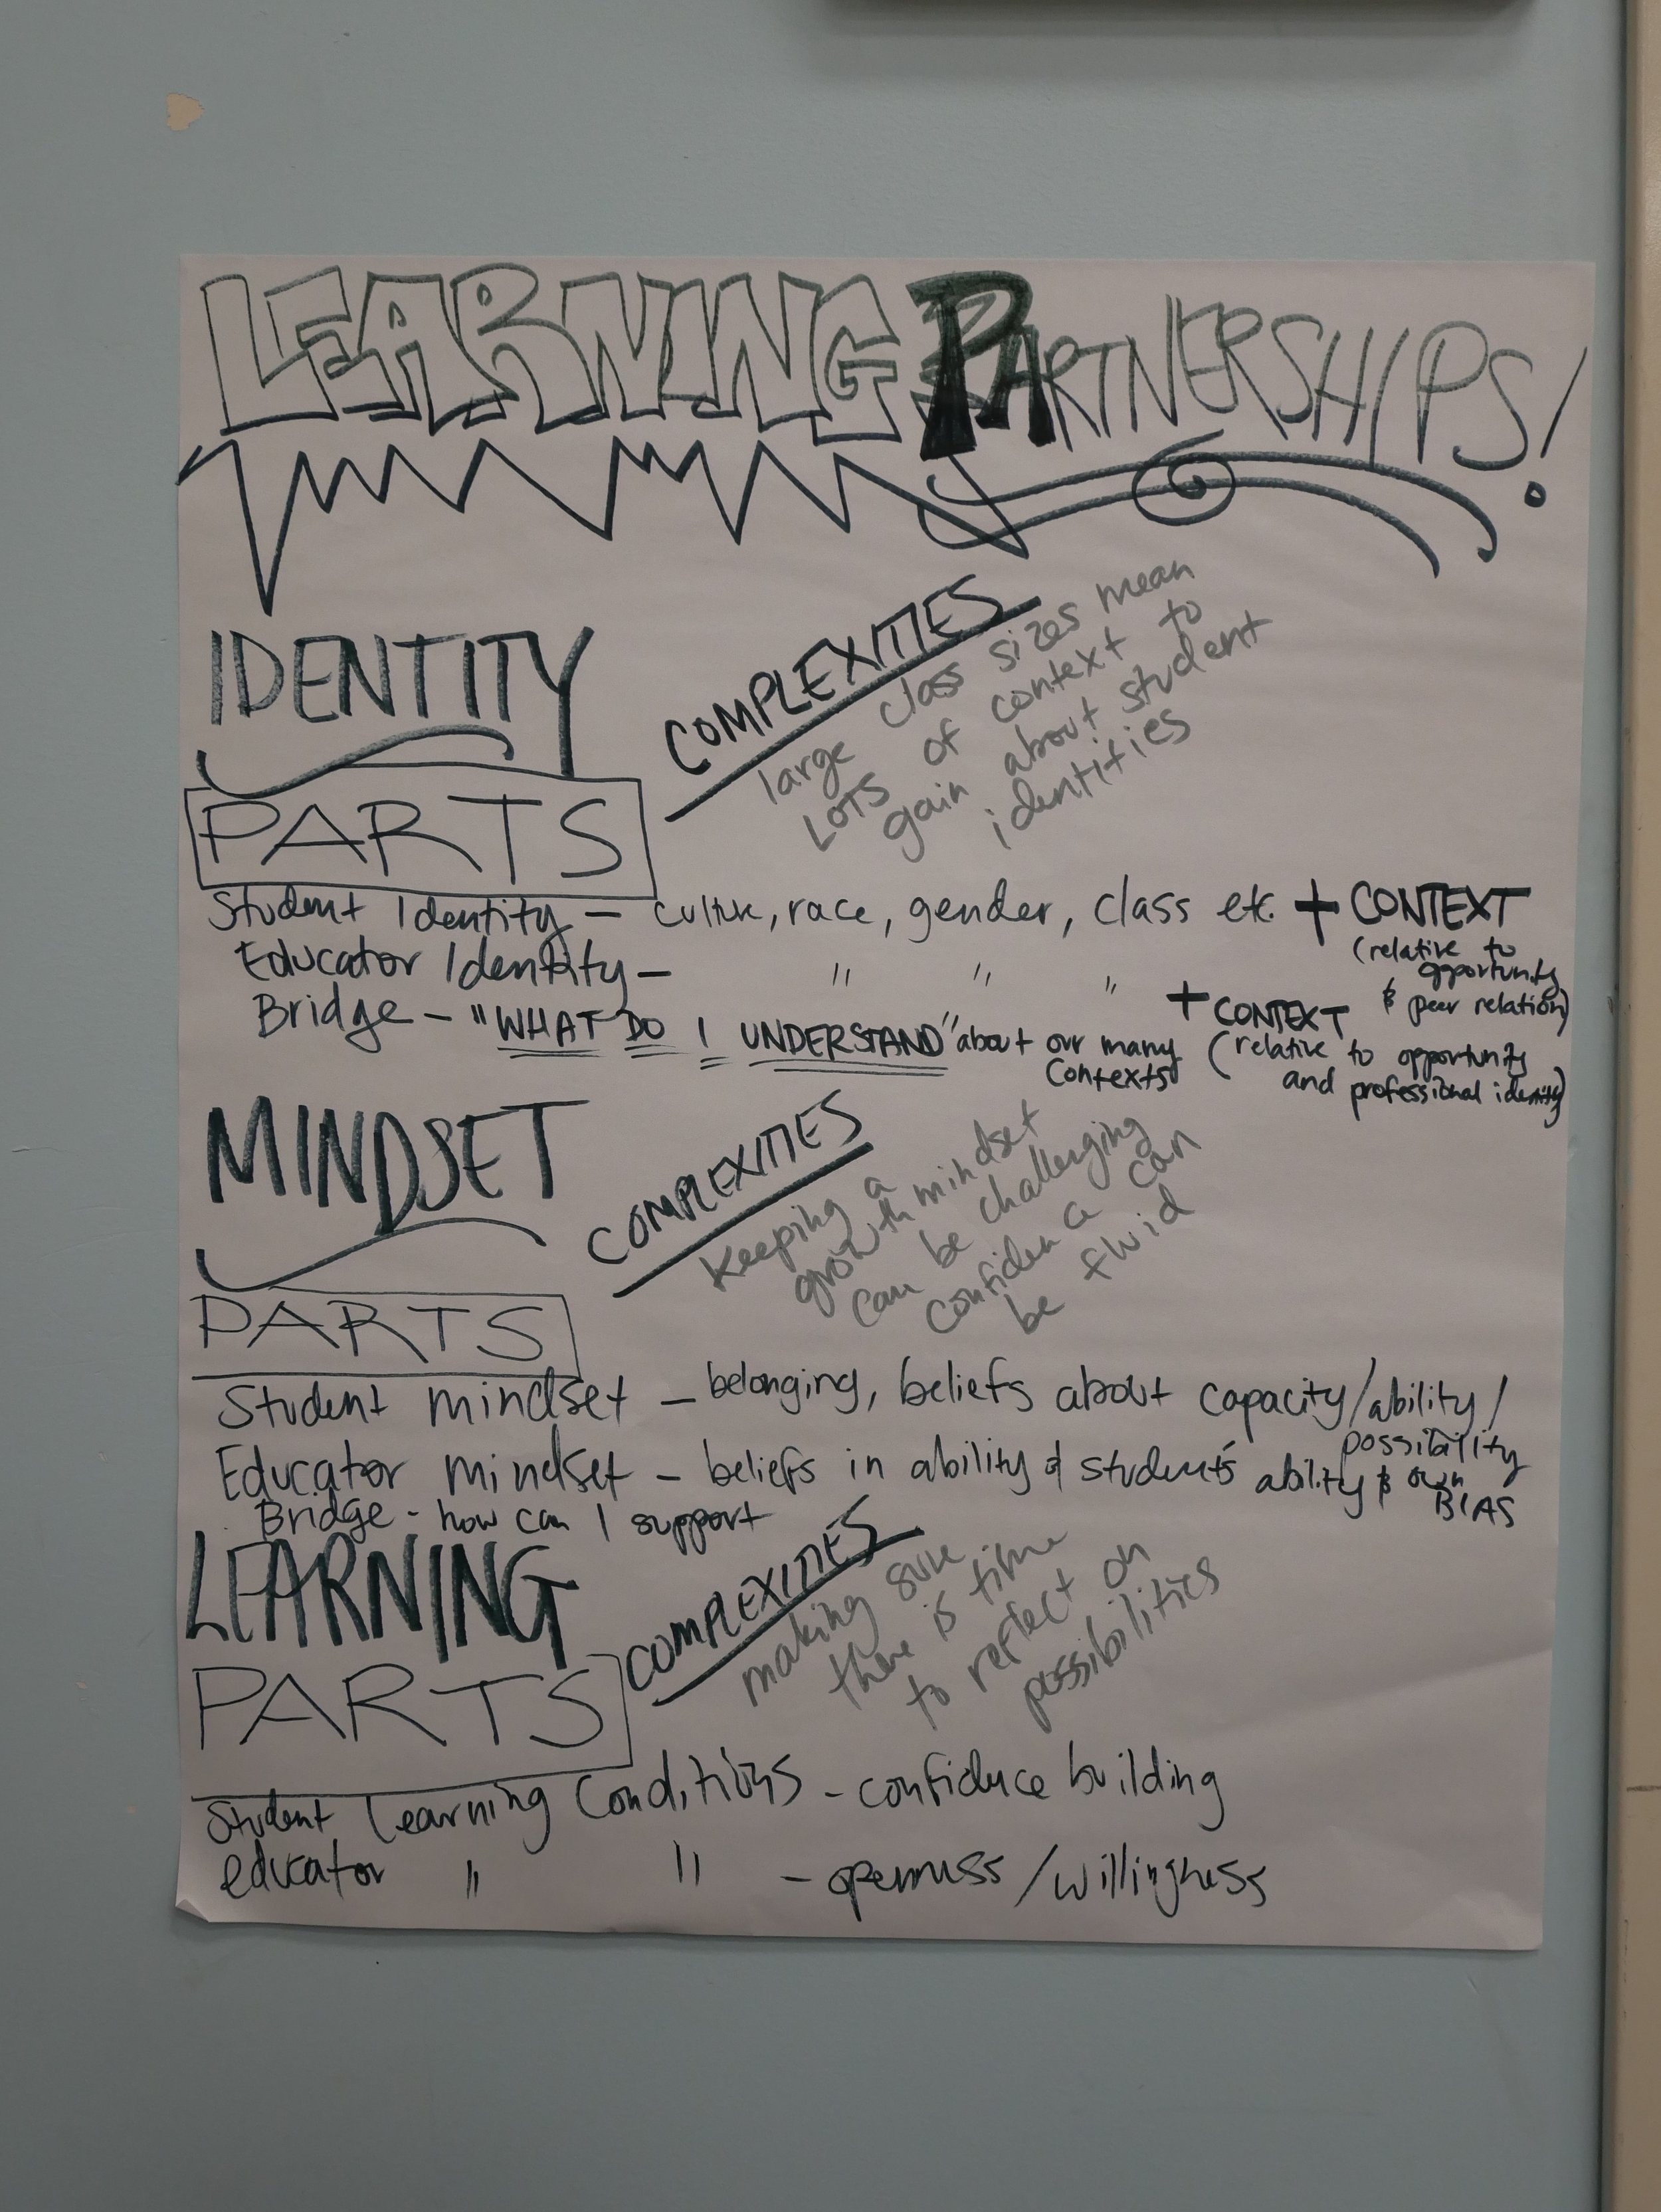 LEARNING PARTNERSHIPS!
IDENTITY
COMPLEXITIES
large class sizes mean
LOTS of context to
gain about student
identities
PARTS
Student Identity — culture, race, gender, class etc. + CONTEXT
(relative to
opportunity
& peer relation)
Educator Identity — " " "
+ CONTEXT
(relative to opportunity
and professional identity)
Bridge - "WHAT DO I UNDERSTAND" about our many
contexts
MINDSET
COMPLEXITIES
Keeping a
growth mindset
can be challenging
confidence can
be fluid
PARTS
Student mindset - belonging, beliefs about capacity/ability/
possibility
Educator mindset - beliefs in ability & students' ability & own
BIAS
Bridge - how can I support
LEARNING
COMPLEXITIES
making sure
there is time
to reflect on
possibilities
PARTS
Student Learning Conditions - confidence building
educator " " - openness/willingness